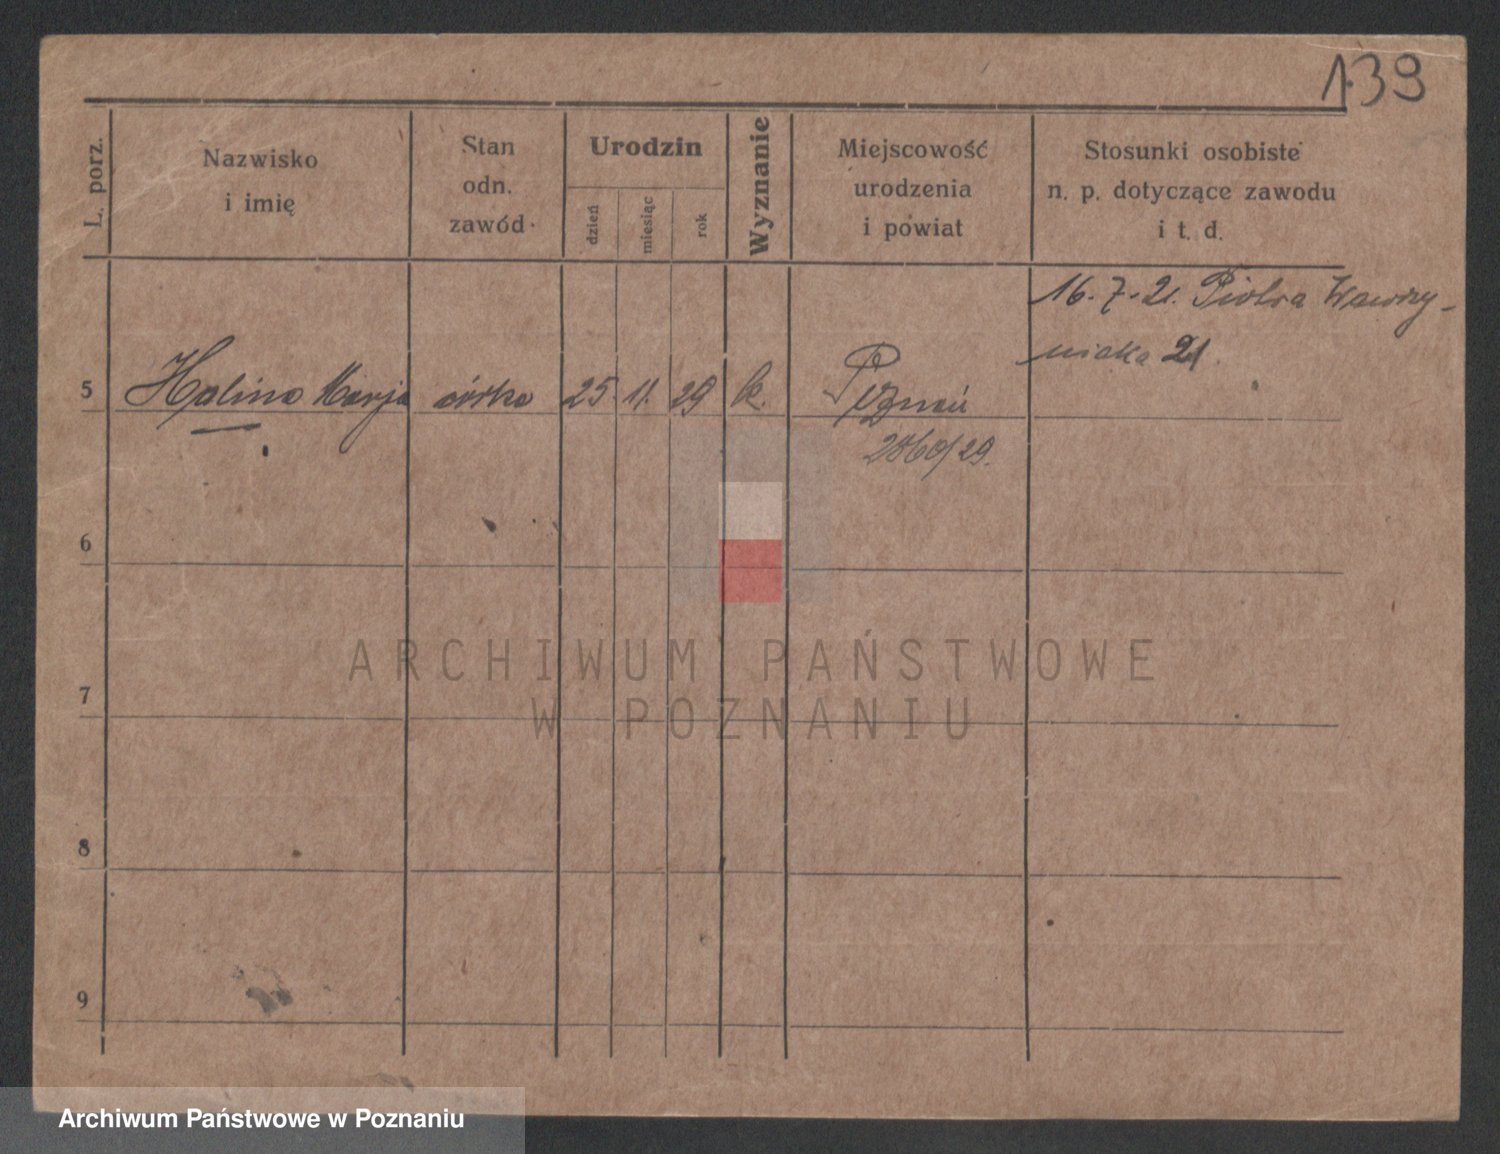 139
L. porz.
Nazwisko
i imię
Stan
odn.
zawód
Urodzin
dzień
miesiąc
rok
Wyznanie
Miejscowość
urodzenia
i powiat
Stosunki osobiste
n. p. dotyczące zawodu
i t. d.
16.7.21. Piotra Wawrzy-
niaka 21
5 Halina Marja córka 25. 11. 29 k. Poznań
2860/29.
6
ARCHIWUM PAŃSTWOWE
7
W POZNANIU
8
9
Archiwum Państwowe w Poznaniu